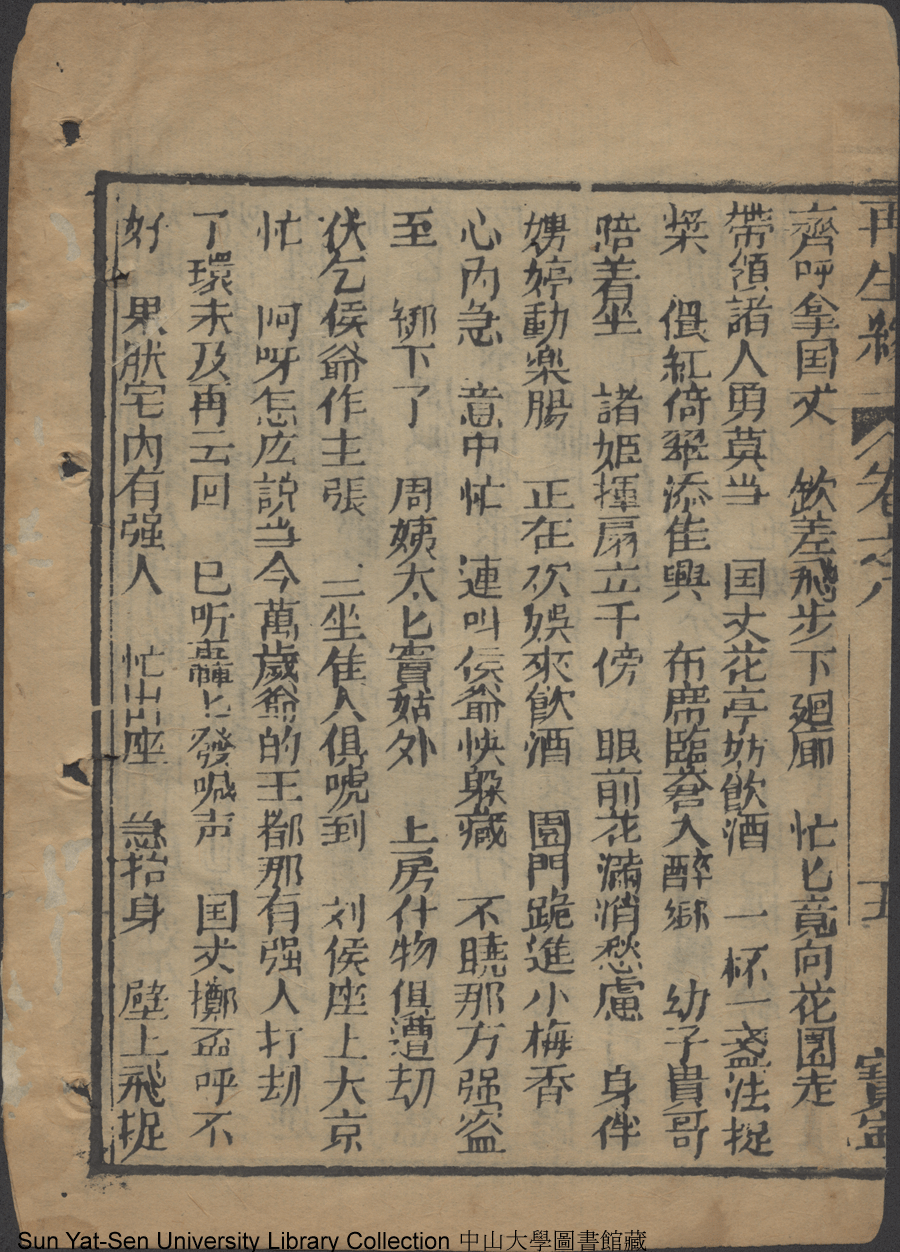 再生緣 卷之八 五 寶寧
齊呼拿国丈 欽差飛步下廻廊 忙匕竟向花園走
帶領諸人勇莫当 国丈花亭妨飲酒 一杯一盞法捉
槳 偎紅倚翠添隹興 布席臨窓入醉鄉 幼子貴哥
陪着坐 諸姬揮扇立千傍 眼前花滿消愁慮 身伴
娉婷動楽腸 正在欢娛來飲酒 園門跪進小梅香
心內急 意中忙 連叫侯爺快躱藏 不曉那方强盜
至 綁下了 周姨太匕竇姑外 上房什物俱遭刧
伏乞侯爺作主張 三坐隹人俱唬到 刘侯座上大京
忙 阿呀怎庅說当今萬歲爺的王都那有强人打刧
了環未及再云囘 已听轟匕發喊声 国丈擲盃呼不
好 果然宅內有强人 忙出座 急抬身 壁上飛捉
Sun Yat-Sen University Library Collection 中山大學圖書館藏